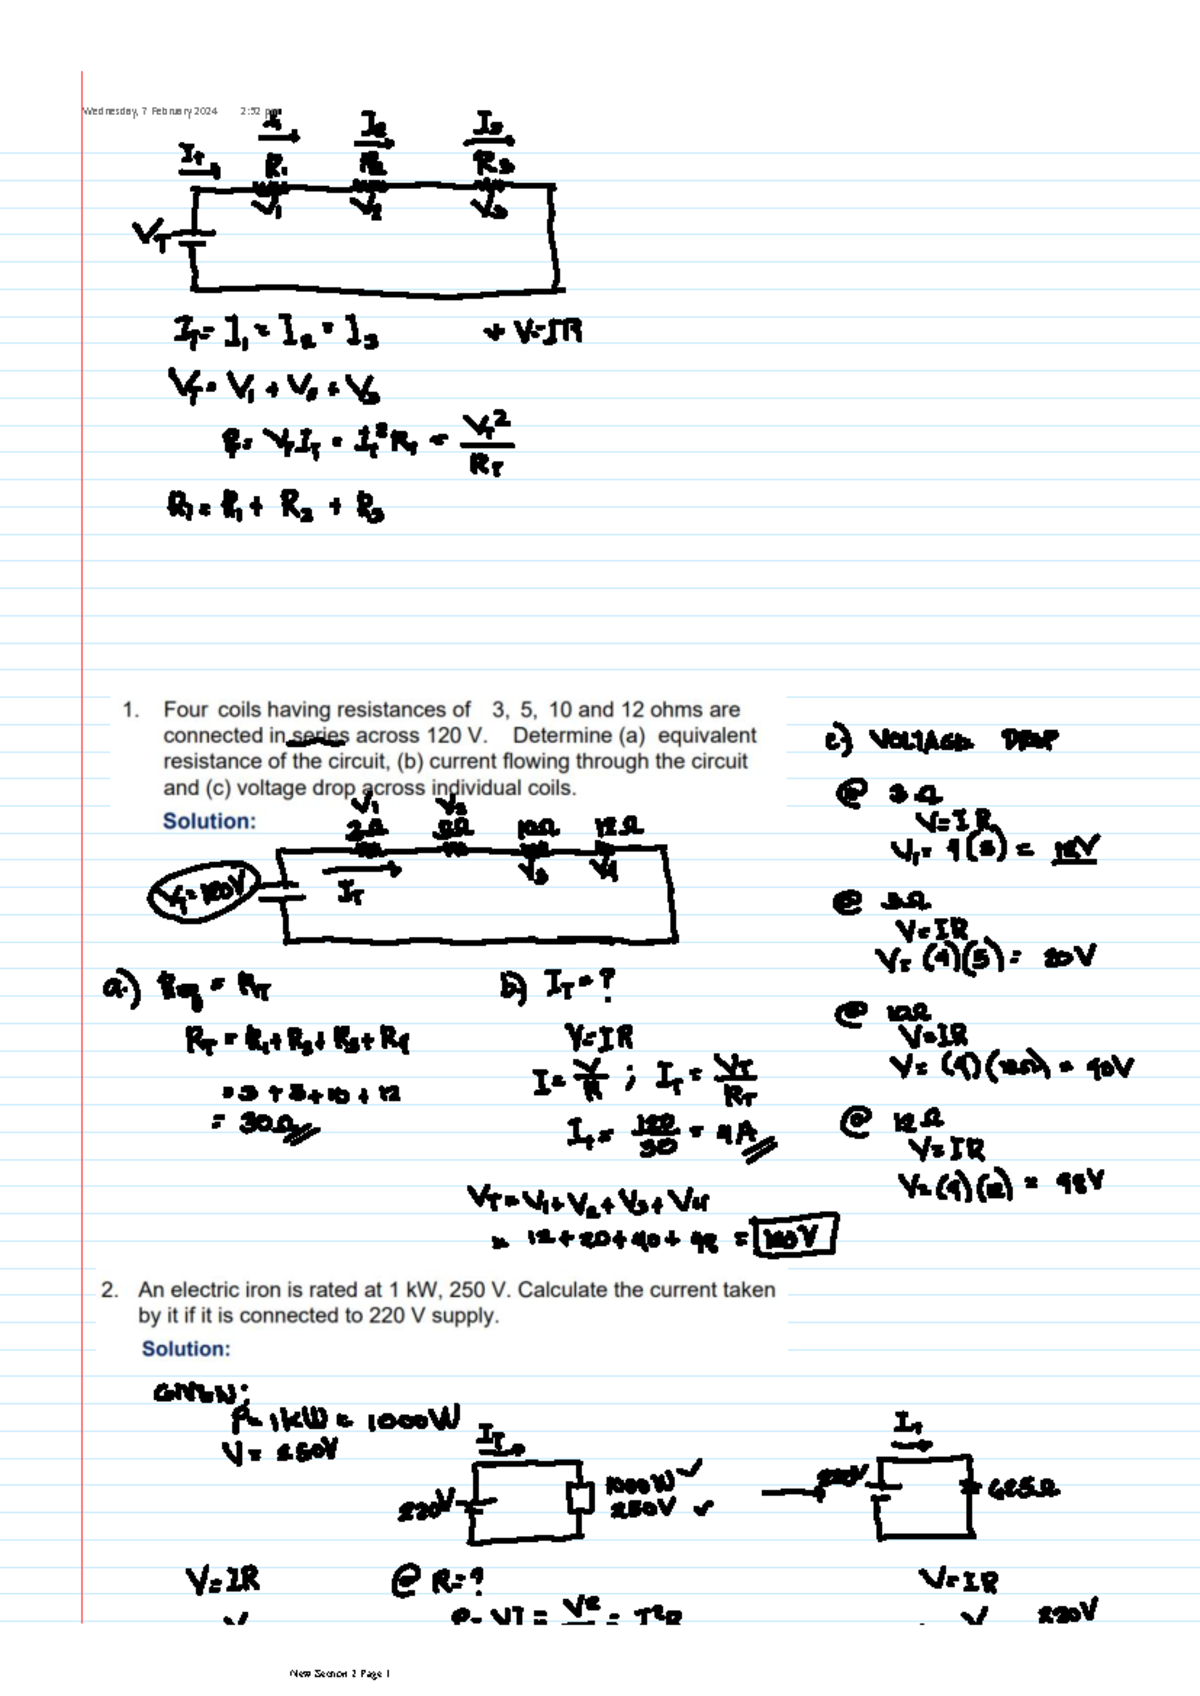 Wednesday, 7 February 2024 2:52 pm
I₁ I₂ I₃
I_T R₁ R₂ R₃
V₁ V₂ V₃
V_T
I_T = I₁ = I₂ = I₃ + V=IR
V_T = V₁ + V₂ + V₃
P = V_T I_T = I_T² R_T = V_T² / R_T
R_T = R₁ + R₂ + R₃
1. Four coils having resistances of 3, 5, 10 and 12 ohms are
connected in series across 120 V. Determine (a) equivalent
resistance of the circuit, (b) current flowing through the circuit
and (c) voltage drop across individual coils.
Solution:
V₁ V₂
3Ω 5Ω 10Ω 12Ω
V₃ V₄
V_T = 120V I_T
a.) Req = R_T
R_T = R₁ + R₂ + R₃ + R₄
= 3 + 5 + 10 + 12
= 30Ω
b) I_T = ?
V=IR
I = V/R ; I_T = V_T / R_T
I_T = 120/30 = 4A
V_T = V₁ + V₂ + V₃ + V₄
= 12 + 20 + 40 + 48 = 120V
c) VOLTAGE DROP
@ 3Ω
V=IR
V₁ = 4(3) = 12V
@ 5Ω
V=IR
V = (4)(5) = 20V
@ 10Ω
V=IR
V = (4)(10Ω) = 40V
@ 12Ω
V=IR
V = (4)(12) = 48V
2. An electric iron is rated at 1 kW, 250 V. Calculate the current taken
by it if it is connected to 220 V supply.
Solution:
GIVEN:
P = 1kW = 1000W
V = 250V
I_T
220V 1000W ✓
250V ✓
I_T
220V 62.5Ω
V=IR @ R=? V=IR
P = VI = V² = I²R
V 220V
New Section 2 Page 1